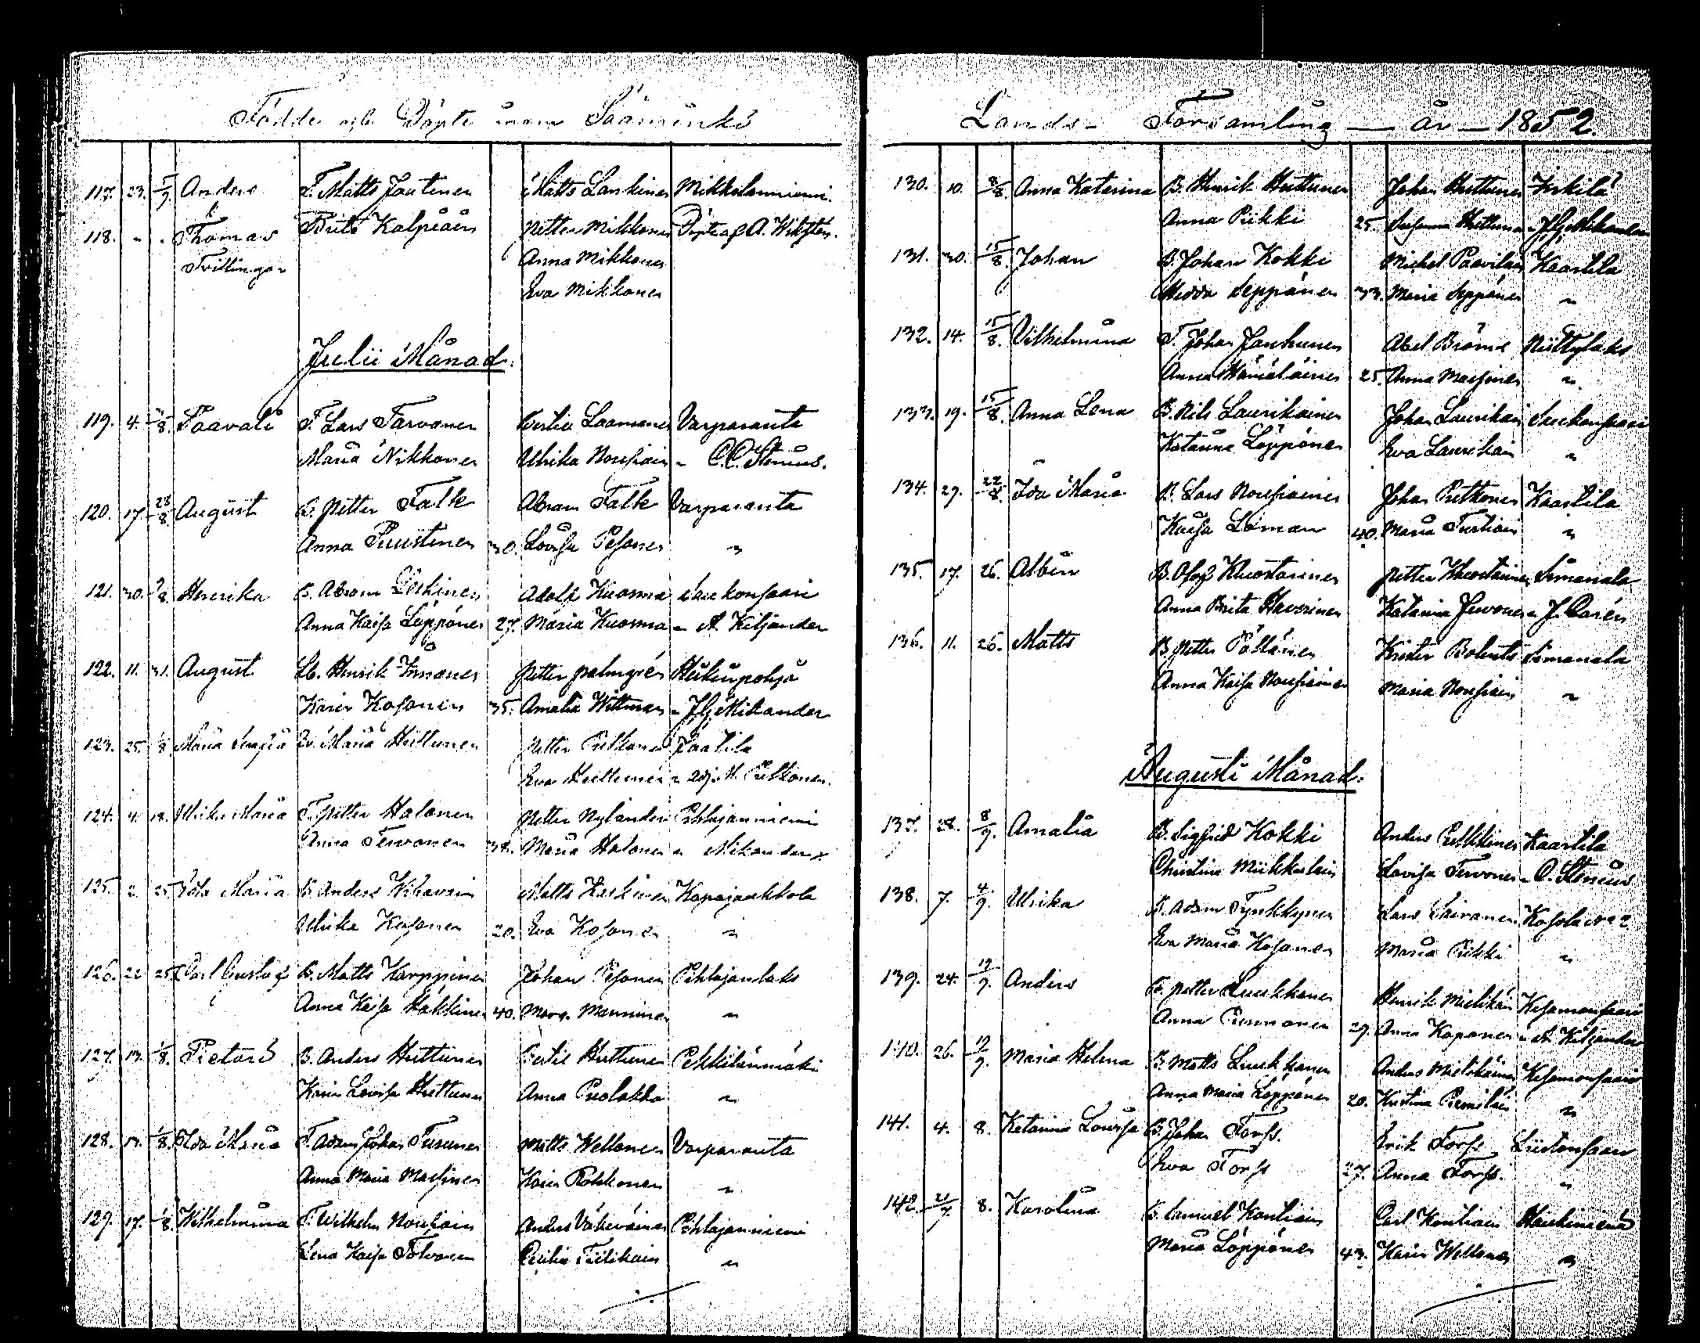 Födde och Döpte inom Sääminki
117. 23. 1/7. Anders T. Matts Jantinen Matts Laukinen Mikkelanniemi.
118. " " Thomas Brita Kolpiäin Petter Mikkonen Döpte af A. Wikstén.
Tvillingar Anna Mikkonen
Eva Mikkonen
Julii Månad.
119. 4. 8. Paavali T. Lars Tarvonen Bertil Laamanen Varparanta
Maria Nikkonen Ulrika Nousiain " C.C. Stenius.
120. 17. 28/8. August B. Petter Falk Abram Falk Varparanta
Anna Puustinen 30. Lovisa Pesonen "
121. 30. 1/8. Henrika B. Abram Laukinen Adolf Kuosma Saukonsaari
Anna Kaisa Löppönen 27. Maria Kuosma " A. Kiljander
122. 11. 31. August Henrik Immonen Petter Palmgrén Heikinpohja
Karin Kosonen 35. Amalia Wittman " J.G. Mikander
123. 25. 1/8. Maria Maria Huttunen Petter Putkonen Paatila
Eva Huttunen " M. Putkonen.
124. 4. 18. Ulrika Maria T. Petter Halonen Petter Nylander Pihlajanniemi
Anna Tervonen 38. Maria Halonen " Mikander.
125. 2. 25. Ida Maria B. Anders Kihavain Matts Kaskinen Kopojankkola
Ulrika Kosonen 20. Eva Kosonen "
126. 22. 25. Carl Gustaf B. Matts Karppinen Johan Pesonen Pihlajanlaks
Anna Kaisa Häkkinen 40. Marg. Manninen "
127. 13. 1/8. Pietari B. Anders Huttunen Bertil Huttunen Pikkilänmäki
Karin Lovisa Huttunen Anna Puolakka "
128. 14. 1/8. Ida Maria T. Adam Johan Turunen Matts Wellonen Varparanta
Anna Maria Massinen Karin Rokkonen "
129. 17. 1/8. Wilhelmina T. Wilhelm Nousiain Anders Väkeväinen Pihlajanniemi
Lena Kaisa Tolvanen Cecilia Tiilikain "
Lands- Församling — år — 1852
130. 10. 8/8. Anna Katarina B. Henrik Huttunen Johan Huttunen Kirkilä
Anna Pirkki 25. Susanna Huttunen " J.G. Mikander
131. 30. 15/8. Johan B. Johan Kokki Michel Paavilain Kaartila
Hedda Seppänen 33. Maria Seppänen "
132. 14. 15/8. Vilhelmina T. Johan Janhunen Abel Bröms Niittylaks
Anna Hämäläinen 25. Anna Massinen "
133. 19. 15/8. Anna Lena B. Nils Laurikainen Johan Laurikain Saukonsaari
Katarina Löppönen Eva Laurikain "
134. 29. 22/8. Ida Maria B. Lars Nousiainen Johan Putkonen Kaartila
Kaisa Löman 40. Maria Turtiain "
135. 17. 26. Albin B. Olof Khuostainen Petter Khuostainen Simanala
Anna Brita Haverinen Katarina Juvonen " J. Carén
136. 11. 26. Matts B. Petter Pöllänen Krister Simanala
Anna Kaisa Nousiainen Maria Nousiain "
Augusti Månad.
137. 28. 8/9. Amalia B. Sigfrid Kokki Anders Pulkkinen Kaartila
Christina Miikkulain Lovisa Tervonen " C. Stenius
138. 7. 4/9. Ulrika B. Adam Tynkkynen Lars Sairanen Kosola No 2
Eva Maria Kosonen Maria Pirkki "
139. 24. 12/9. Anders B. Petter Luukkonen Henrik Mielikäin Kesamonsaari
Anna Purmonen 29. Anna Koponen " A. Kiljander
140. 26. 12/9. Maria Helena B. Matts Luukkonen Anders Mielikäinen Kesamonsaari
Anna Maria Löppönen 20. Kristina Purmiläin "
141. 4. 8. Katarina Lovisa B. Johan Forss. Erik Forss Liistonsaari
Eva Forss 27. Anna Forss. "
142. 21/7 8. Karolina B. Samuel Kontiain Carl Kontiain Haukiniemi
Maria Löppönen 43. Karin Wellonen "